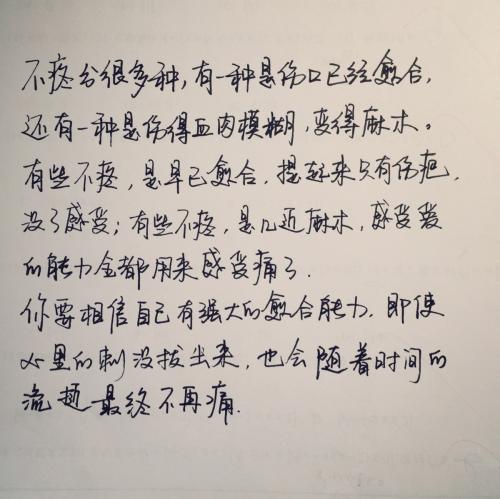 不疼分很多种,有一种是伤口已经愈合,
还有一种是伤得血肉模糊,变得麻木。
有些不疼,是早已愈合,提起来只有伤疤,
没了感受;有些不疼,是几近麻木,感受爱
的能力全都用来感受痛了.
你要相信自己有强大的愈合能力.即使
心里的刺没拔出来,也会随着时间的
流逝最终不再痛.